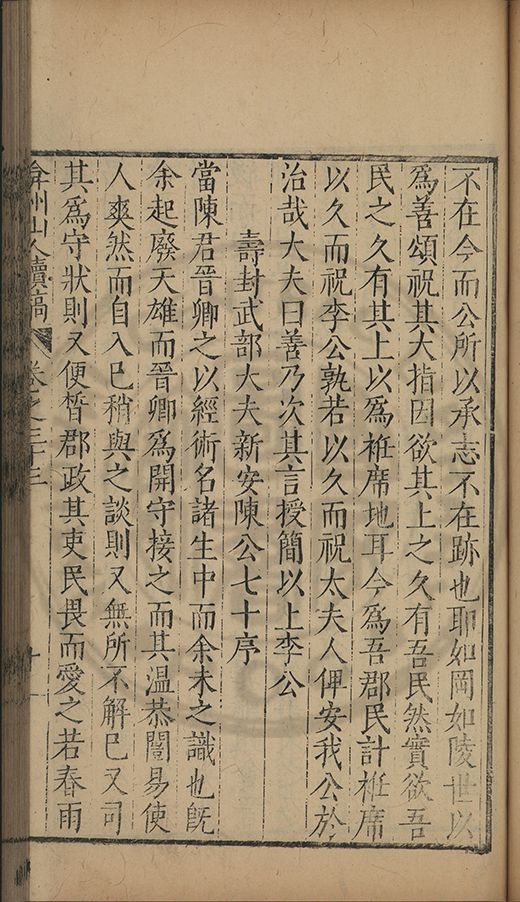 不在今而公所以承志不在跡也耶如岡如陵世以
爲善頌祝其大指因欲其上之久有吾民然實欲吾
民之久有其上以爲袵席地耳今爲吾郡民計袵席
以久而祝李公孰若以久而祝太夫人俾安我公於
治哉大夫曰善乃次其言授簡以上李公
壽封武部大夫新安陳公七十序
當陳君晉卿之以經術名諸生中而余未之識也旣
余起廢天雄而晉卿爲開守接之而其溫恭闓易使
人爽然而自入巳稍與之談則又無所不解巳又司
其爲守狀則又便晳郡政其吏民畏而愛之若春雨
弇州山人續稿 卷之三十三